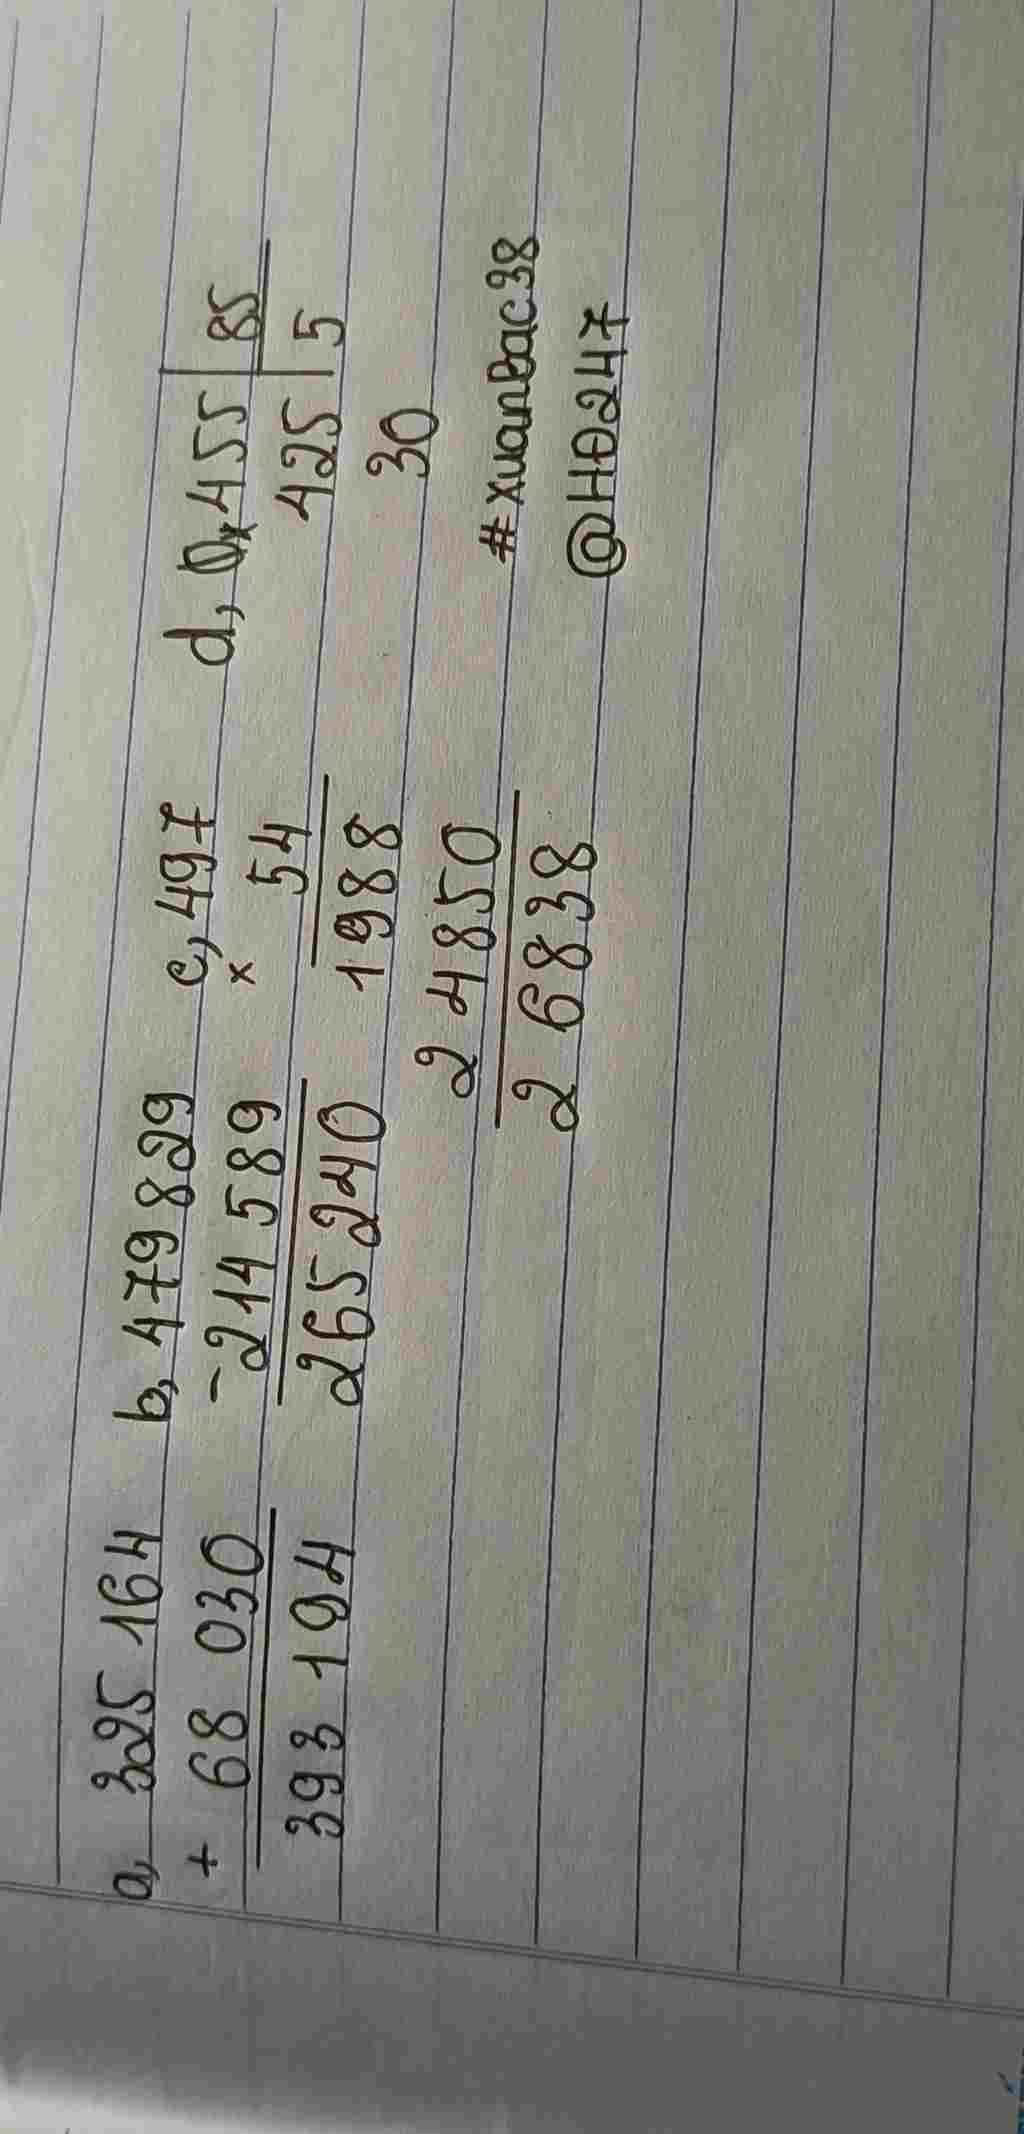 a, 325 164 b, 479 829 c, 497 d, 455 | 85
+ 68 030 - 214 589 x 54 425 | 5
393 194 265 240 1988 30
2 4850
2 6838
#xuanBac38
@H0247